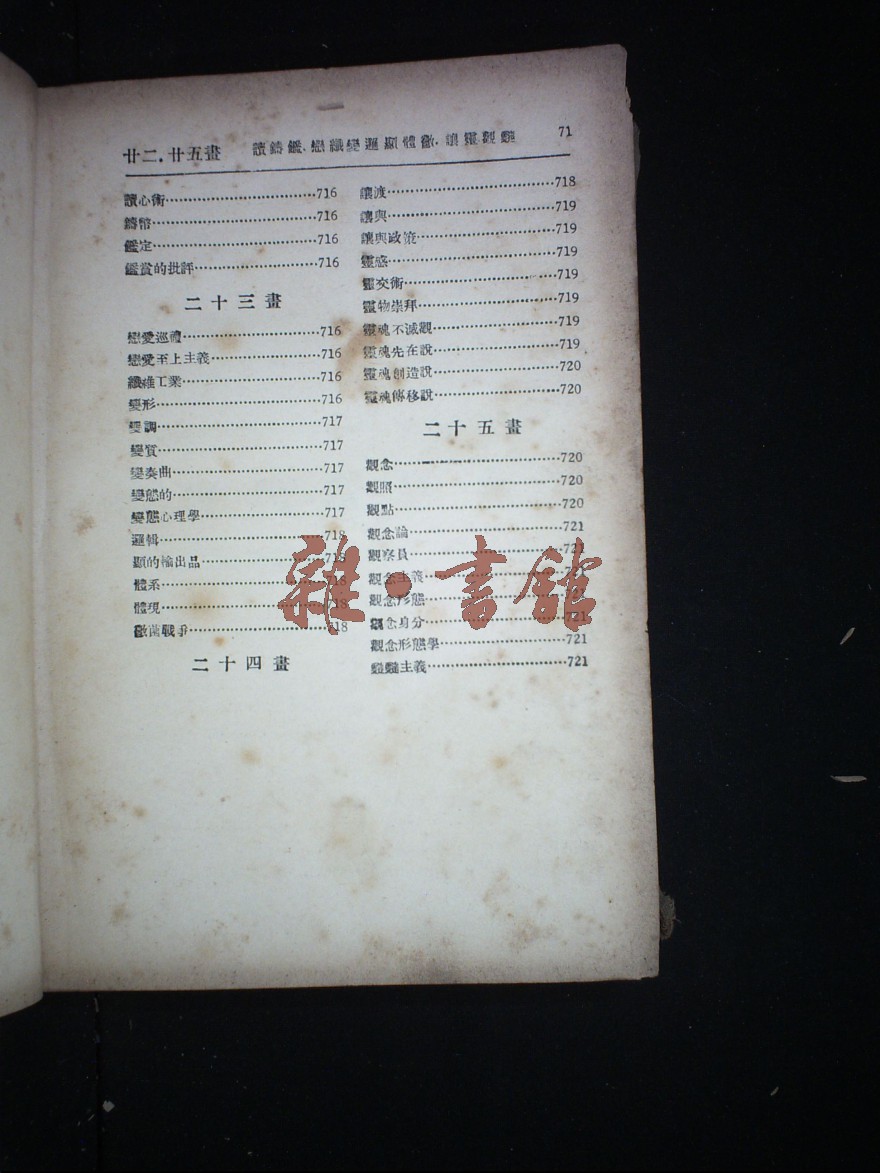 廿二．廿五畫 讀鑄鑑．戀纖變邏顯體黴．讓靈觀豔 71
讀心術 716
鑄幣 716
鑑定 716
鑑賞的批評 716
二十三畫
戀愛巡禮 716
戀愛至上主義 716
纖維工業 716
變形 716
變調 717
變質 717
變奏曲 717
變態的 717
變態心理學 717
邏輯 718
顯的輸出品 718
體系 718
體現 718
黴菌戰爭 718
二十四畫
讓渡 718
讓與 719
讓與政策 719
靈感 719
靈交術 719
靈物崇拜 719
靈魂不滅觀 719
靈魂先在說 719
靈魂創造說 720
靈魂傳移說 720
二十五畫
觀念 720
觀照 720
觀點 720
觀念論 721
觀察員 721
觀念主義 721
觀念形態 721
觀念身分 721
觀念形態學 721
主義 721
雜·書館